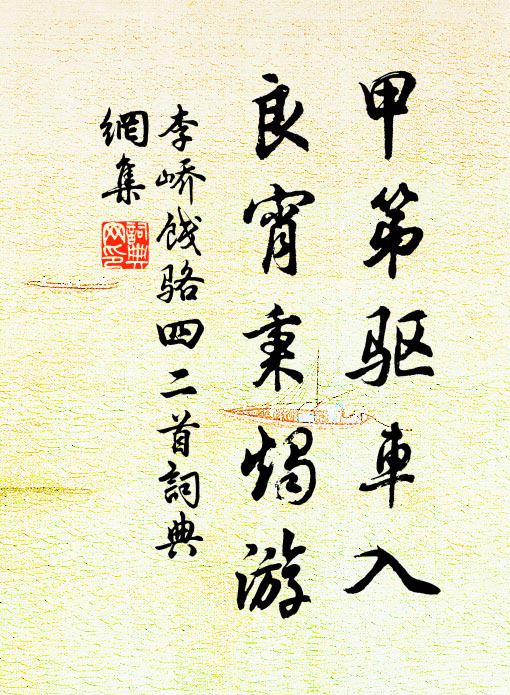 甲第驱車入
良宵秉燭游
李峤餞骆四二首詞典
網集
詞典网印